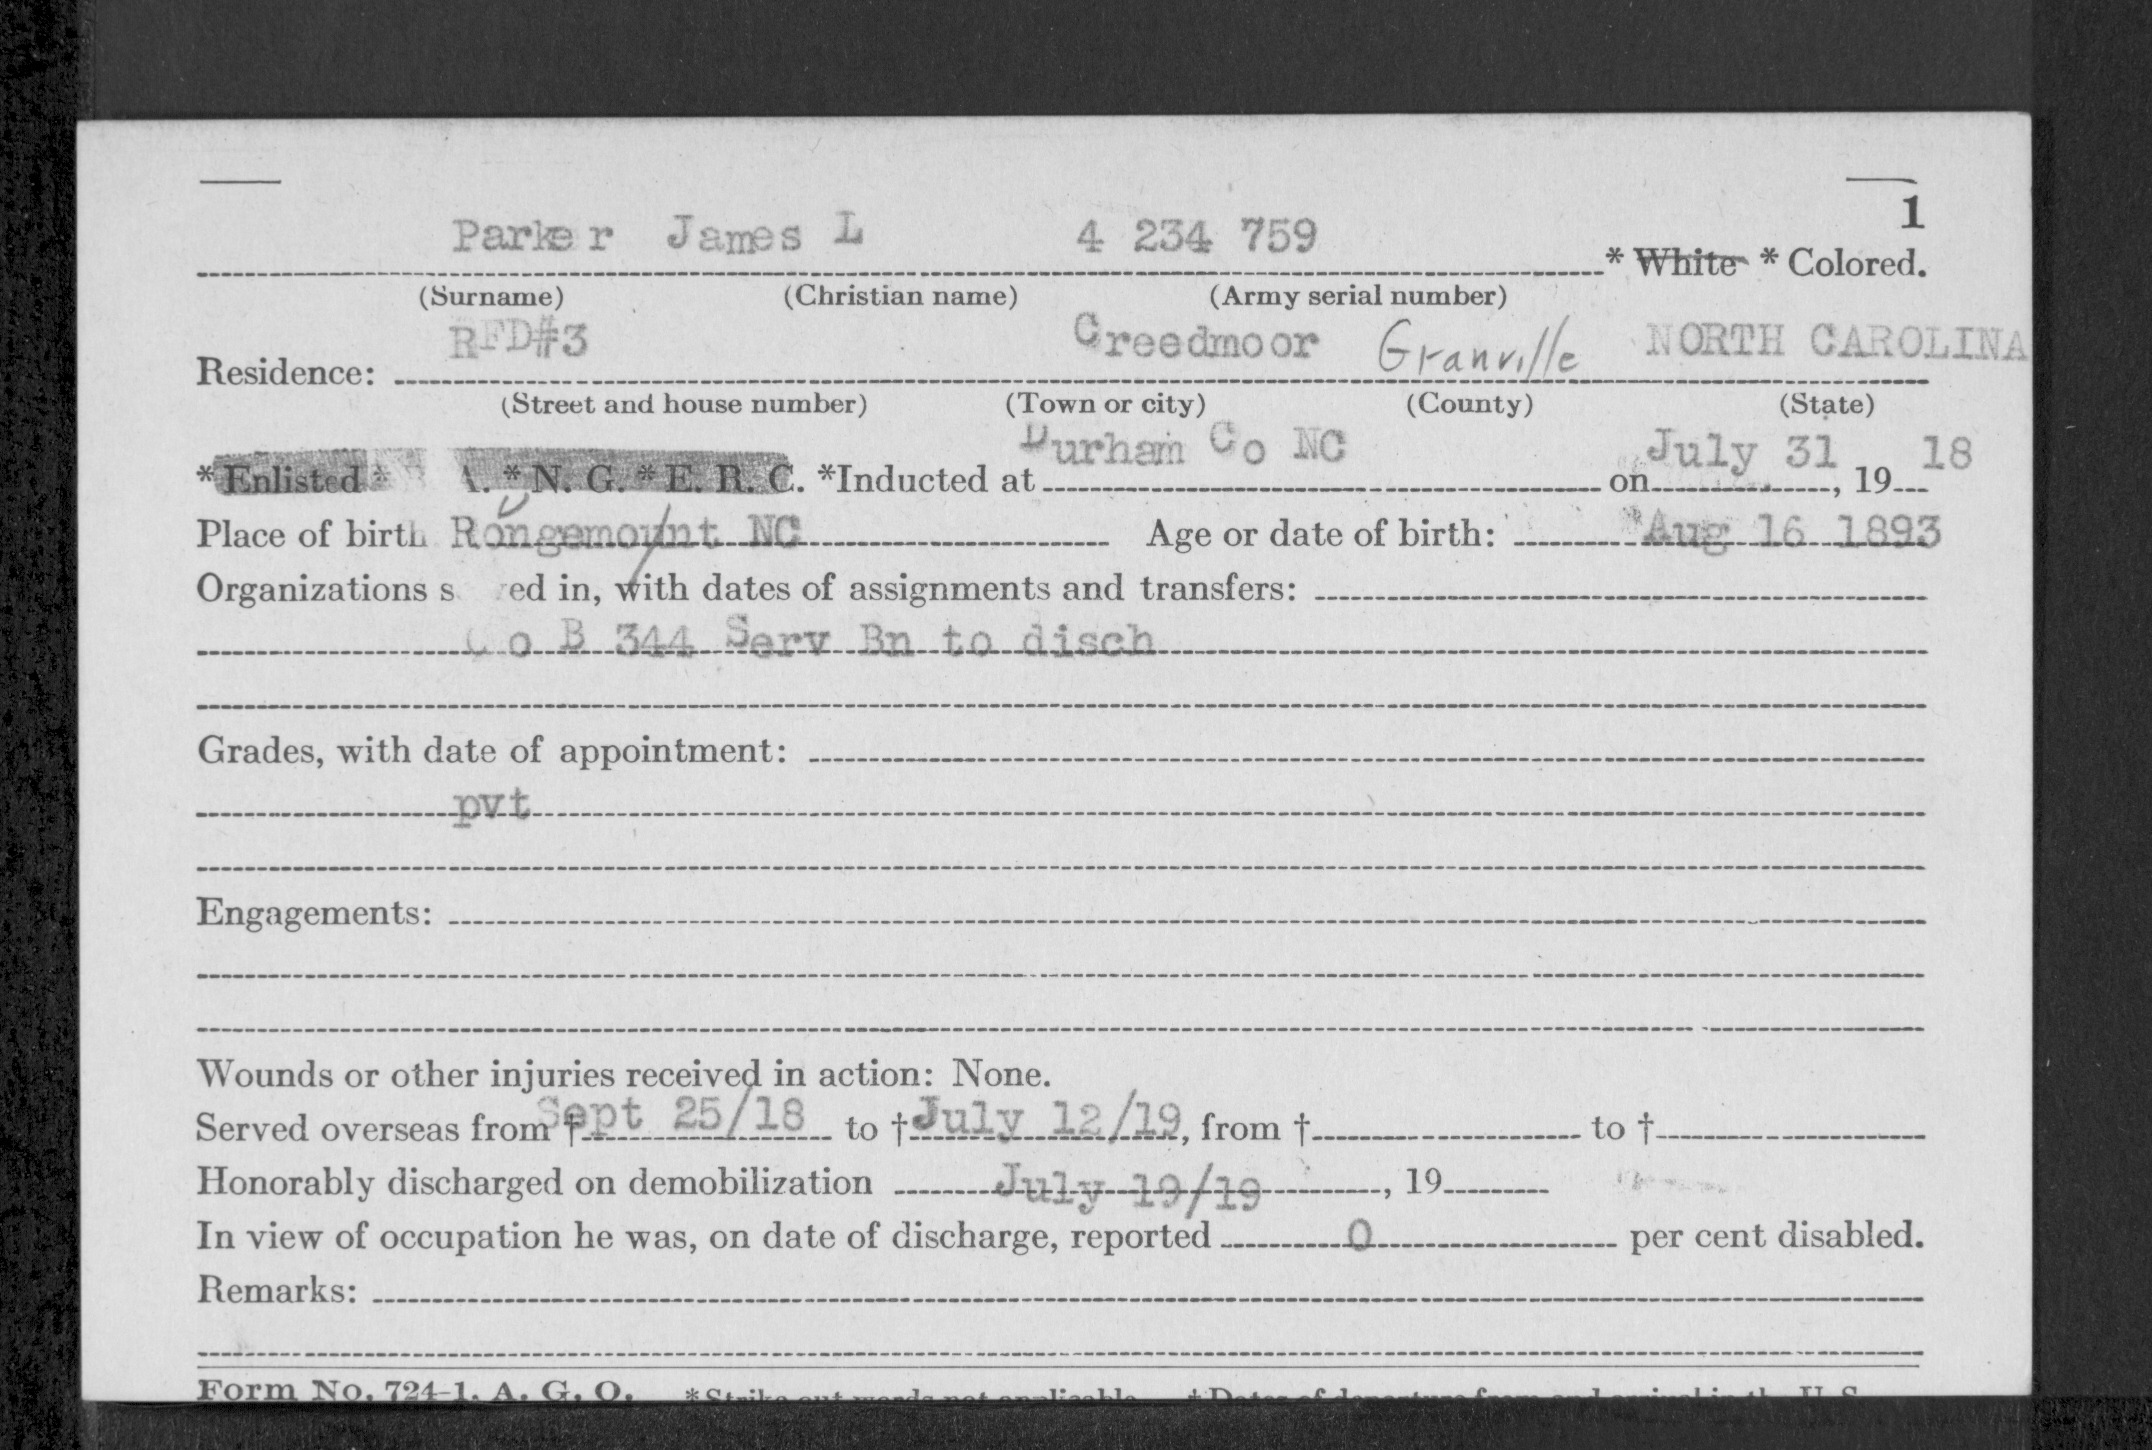 1
Parker James L 4 234 759 * White * Colored.
(Surname) (Christian name) (Army serial number)
RFD#3 Creedmoor Granville NORTH CAROLINA
Residence:
(Street and house number) (Town or city) (County) (State)
Durham Co NC July 31 18
*Enlisted * A. * N. G. * E. R. C. *Inducted at on , 19
Place of birth Rongemount NC Age or date of birth: Aug 16 1893
Organizations s ed in, with dates of assignments and transfers:
Co B 344 Serv Bn to disch
Grades, with date of appointment:
pvt
Engagements:
Wounds or other injuries received in action: None.
Served overseas from † Sept 25/18 to † July 12/19, from † to †
Honorably discharged on demobilization July 19/19 , 19
In view of occupation he was, on date of discharge, reported 0 per cent disabled.
Remarks:
Form No. 724-1, A. G. O. *Strike out words not applicable. †Dates of departure from and arrival in the U. S.